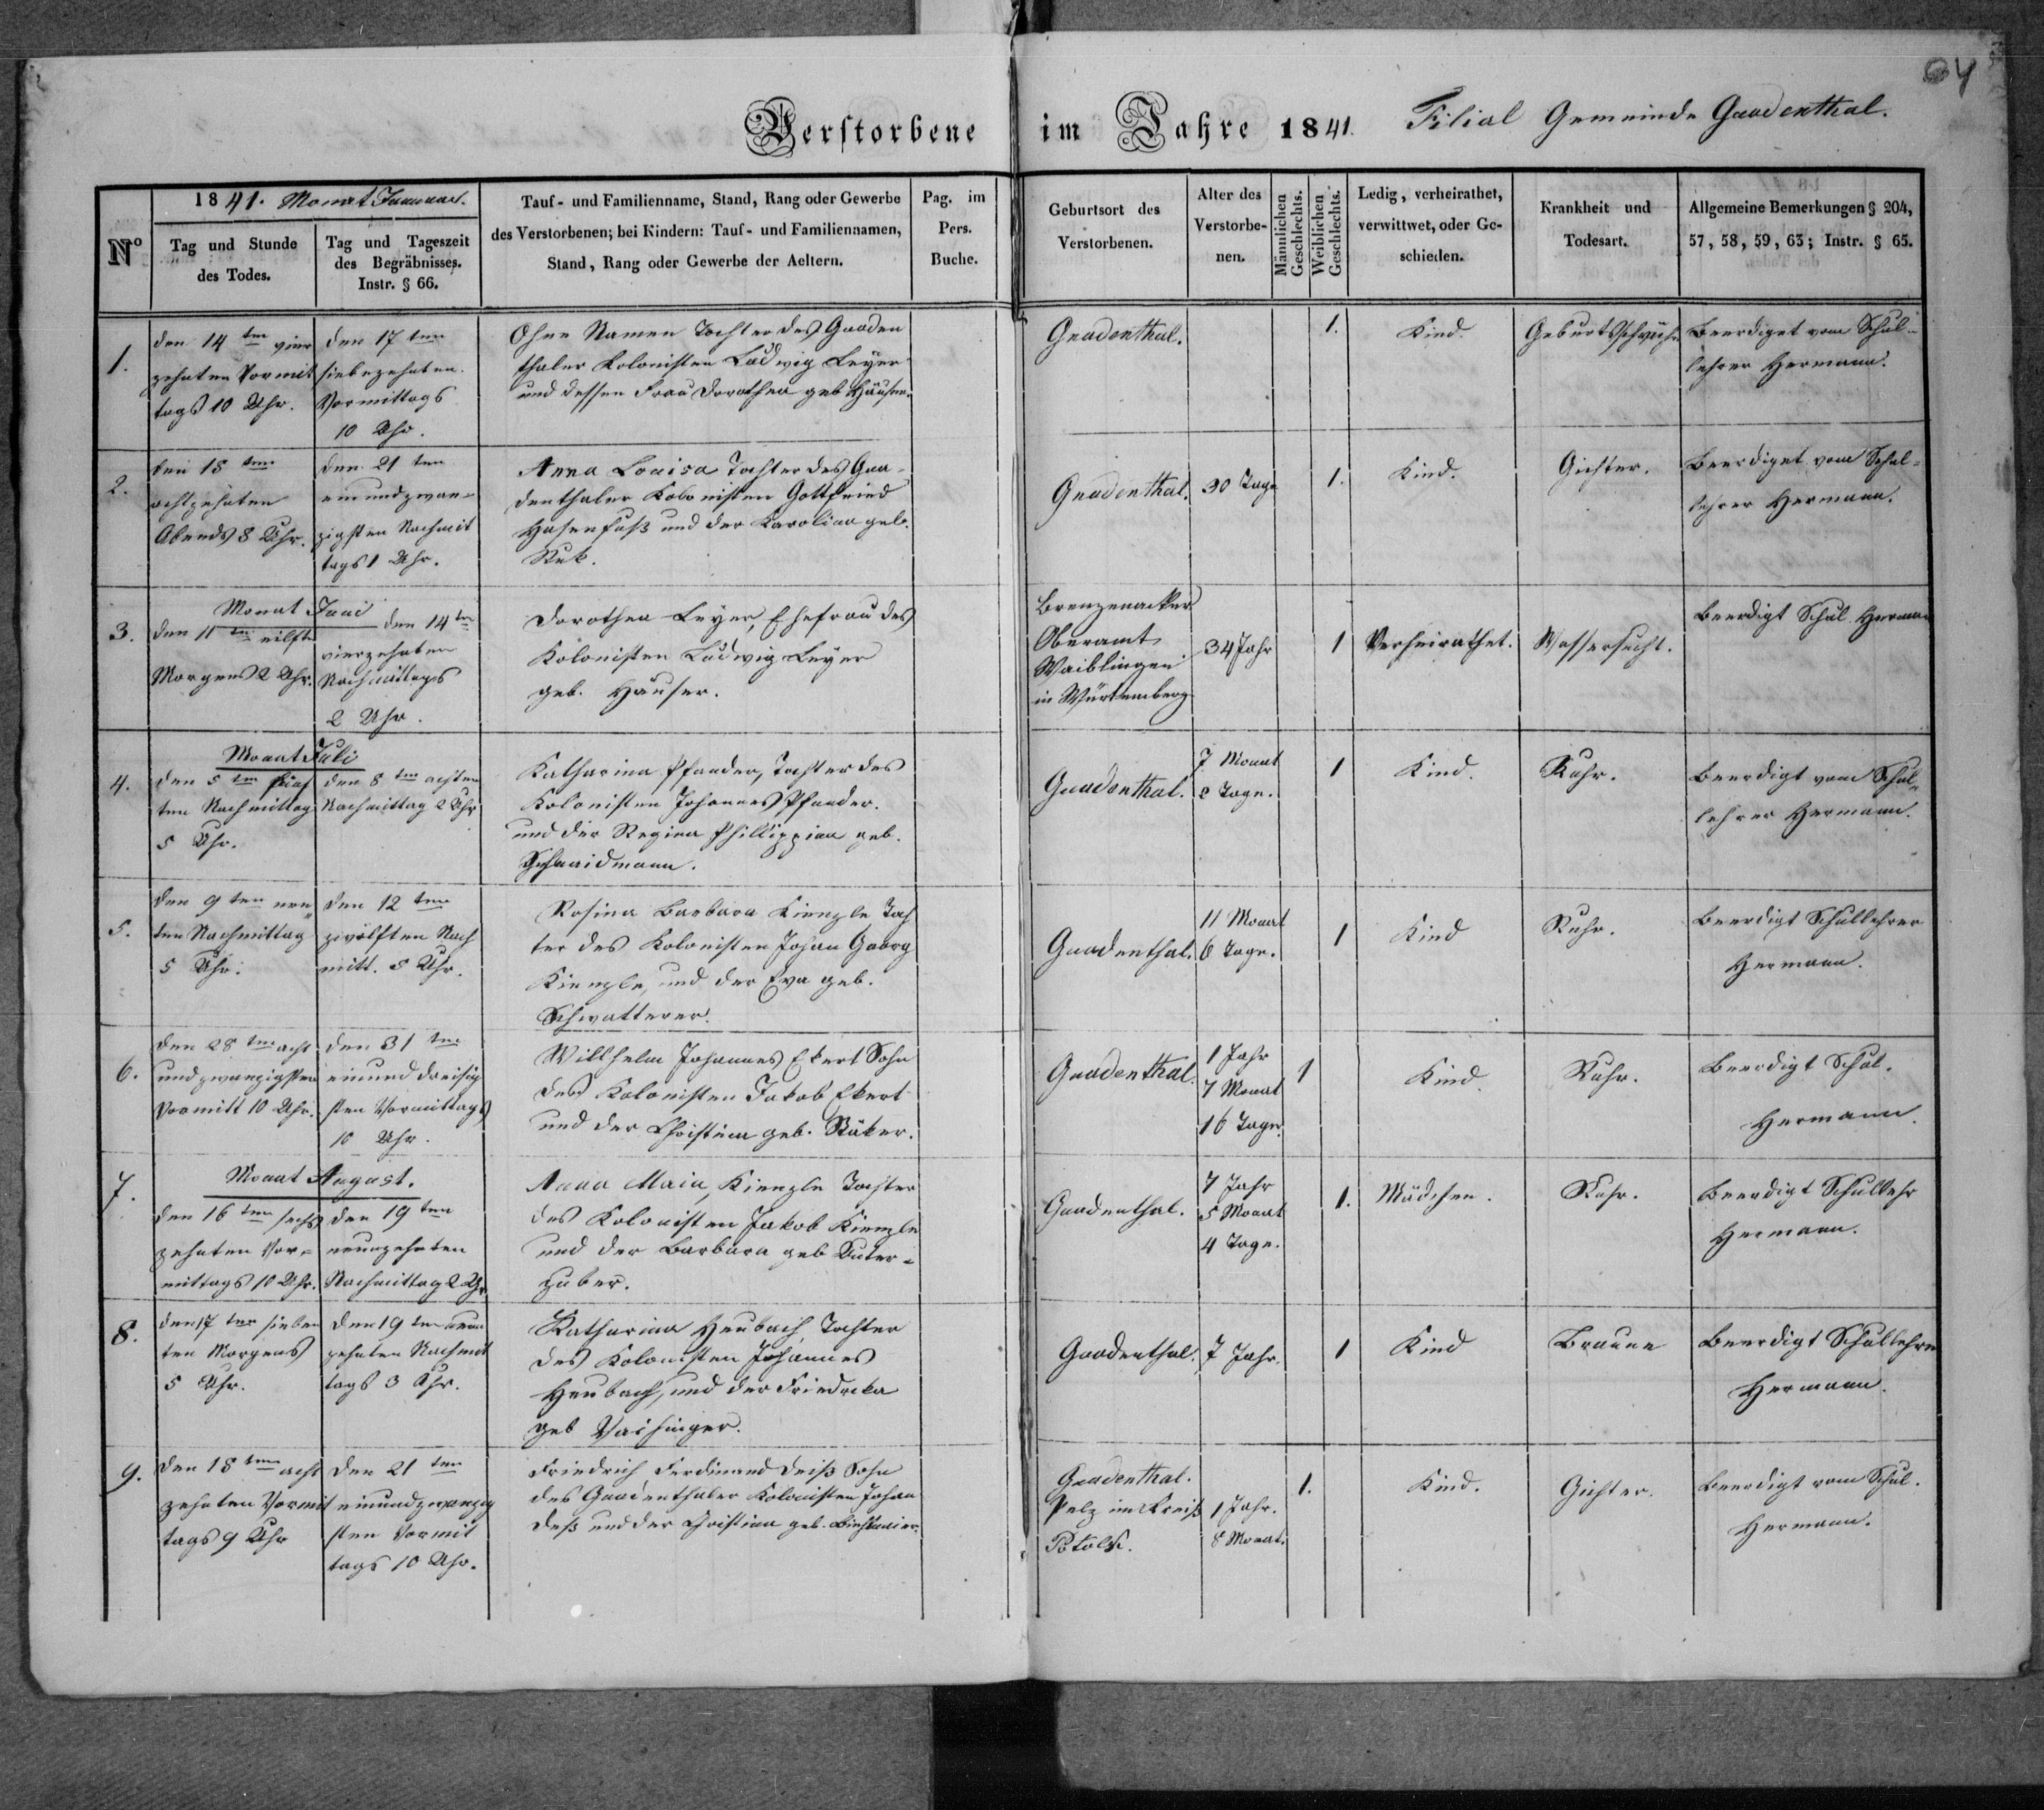 Verstorbene im Jahre 1841. Filial Gemeinde Gnadenthal.
Nº
1841. Monat Januar.
Tag und Stunde
des Todes.
Tag und Tageszeit
des Begräbnisses.
Instr. § 66.
Tauf- und Familienname, Stand, Rang oder Gewerbe
des Verstorbenen; bei Kindern: Tauf- und Familiennamen,
Stand, Rang oder Gewerbe der Aeltern.
Pag. im
Pers.
Buche.
Geburtsort des
Verstorbenen.
Alter des
Verstorbe-
nen.
Männlichen
Geschlechts.
Weiblichen
Geschlechts.
Ledig, verheirathet,
verwittwet, oder Ge-
schieden.
Krankheit und
Todesart.
Allgemeine Bemerkungen § 204,
57, 58, 59, 63; Instr. § 65.
1.
den 14 ten vier
zehnten Vormit
tags 10 Uhr.
den 17 ten
siebezehnten
Vormittags
10 Uhr.
Ohne Namen Tochter des Gnaden
thaler Kolonisten Ludwig Leyer
und dessen Frau Dorothea geb Häuser.
Gnadenthal.
1.
Kind.
Geburtsschwäche
Beerdiget vom Schul-
lehrer Hermann.
2.
den 18 ten
achtzehnten
Abends 8 Uhr.
den 21 ten
einundzwan-
zigsten Nachmit
tags 1 Uhr.
Anna Louisa Tochter des Gna-
denthaler Kolonisten Gottfried
Hasenfuß und der Karolina geb.
Ruk.
Gnadenthal.
30 Tage
1.
Kind.
Gichter.
Beerdiget vom Schul-
lehrer Hermann.
Monat Juni
3.
den 11 ten eilften
Morgens 2 Uhr.
den 14 ten
vierzehnten
Nachmittags
2 Uhr.
Dorothea Leyer, Ehefrau des
Kolonisten Ludwig Leyer
geb. Häuser.
Brenzenacker
Oberamt
Waiblingen
in Würtemberg
34 Jahr
1
Verheirathet.
Wassersucht.
Beerdigt Schul. Hermann
Monat Juli
4.
den 5 ten fünf
ten Nachmittag
5 Uhr.
den 8 ten achten
Nachmittag 2 Uhr
Katharina Pfander, Tochter des
Kolonisten Johannes Pfander.
und der Regina Phillippina geb.
Schnaidmann.
Gnadenthal.
7 Monat
2 Tage.
1
Kind.
Ruhr.
Beerdigt vom Schul-
lehrer Hermann.
5.
den 9 ten neu
ten Nachmittag
5 Uhr.
den 12 ten
zwölften Nach
mitt. 5 Uhr.
Rosina Barbara Kienzle Toch
ter des Kolonisten Johan Georg
Kienzle, und der Eva geb.
Schwatterer.
Gnadenthal.
11 Monat
6 Tage.
1
Kind
Ruhr.
Beerdigt Schullehrer
Hermann.
6.
den 28 ten acht
undzwanzigsten
Vormitt 10 Uhr.
den 31 ten
einund dreisig
sten Vormittags
10 Uhr.
Willhelm Johannes Ekert Sohn
des Kolonisten Jakob Ekert
und der Christina geb. Bäker.
Gnadenthal.
1 Jahr
7 Monat
16 Tage.
1
Kind.
Ruhr.
Beerdigt Schul.
Hermann.
Monat August.
7.
den 16 ten sechs
zehnten Vor-
mittags 10 Uhr.
den 19 ten
neunzehnten
Nachmittag 2 Uhr.
Anna Maria, Kienzle Tochter
des Kolonisten Jakob Kienzle
und der Barbara geb Unter-
zuber.
Gnadenthal.
7 Jahr
5 Monat
4 Tage.
1.
Mädchen.
Ruhr.
Beerdigt Schullehr
Hermann.
8.
den 17 ten sieben
ten Morgens
5 Uhr.
den 19 ten neun
zehnten Nachmit
tags 3 Uhr.
Katharina Heubach, Tochter
des Kolonisten Johannes
Heubach, und der Friedreka
geb Vaihinger.
Gnadenthal.
7 Jahr.
1
Kind
Braune
Beerdigt Schullehrer
Hermann.
9.
den 18 ten acht
zehnten Vormit
tags 9 Uhr
den 21 ten
einundzwanzig
sten Vormit
tags 10 Uhr.
Friedrich Ferdinand Deiß Sohn
des Gnadenthaler Kolonisten Johan
Deß und der Christina geb.
Gnadenthal.
Pelz im Kreiß
1 Jahr.
8 Monat.
1.
Kind.
Gichter.
Beerdigt vom Schul.
Hermann.